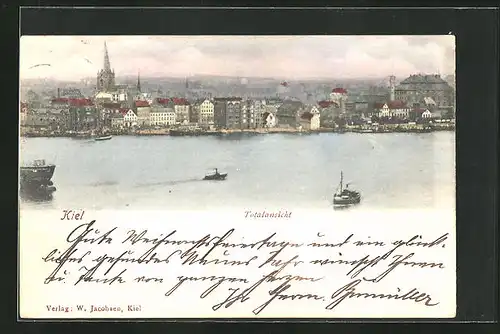 Kiel
Totalansicht
Gute Weihnachtsfeiertage und ein glück-
liches gesundes Neues Jahr wünscht Ihnen
u. Tante von ganzem Herzen
Ihr Herm.
Verlag: W. Jacobsen, Kiel